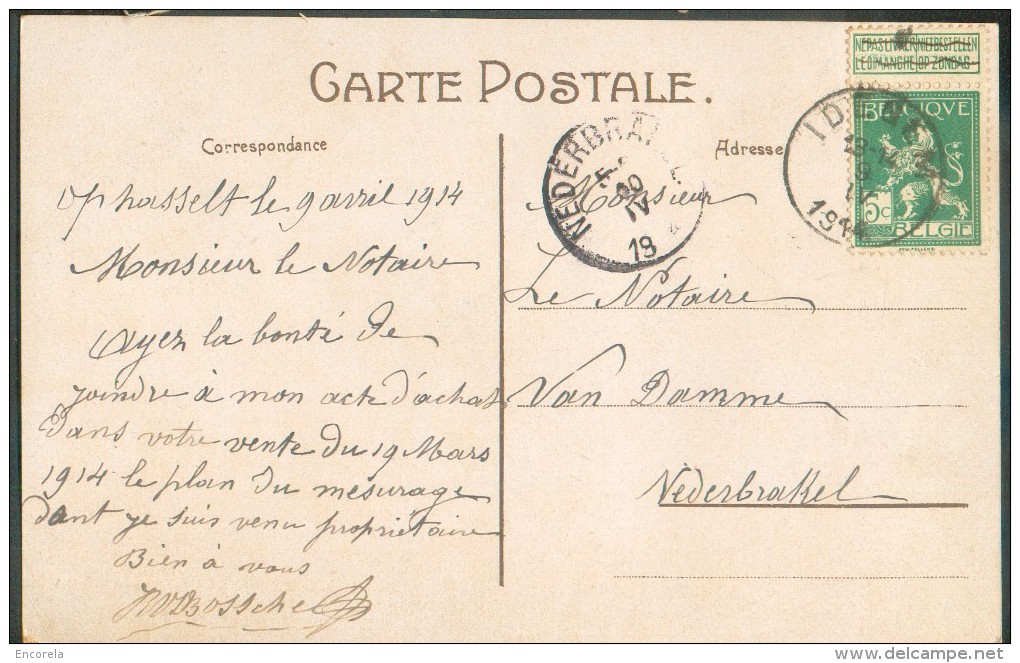 NE PAS LIVRER NIET BESTELLEN
LE DIMANCHE OP ZONDAG
CARTE POSTALE.
BELGIQUE
5c
BELGIE
IDEGEM
1914
NEDERBRAKEL
9
IV
19
Correspondance
Adresse
Ophasselt le 9 avril 1914
Monsieur le Notaire
Ayez la bonté de
joindre à mon acte d'achat
dans votre vente du 19 Mars
1914 le plan du mesurage
dont je suis venu propriétaire
Bien à vous
VDBossche
Monsieur
Le Notaire
Van Damme
Nederbrakel
Encorela
www.delcampe.net